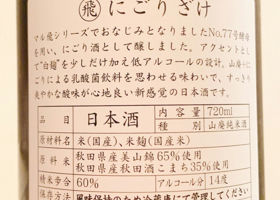 ㊫ にごりざけ
マル飛シリーズでおなじみとなりましたNo.77号酵母
を用い、にごり酒として醸しました。アクセントとし
て"白麹"を少しだけ加え低アルコールの設計。山廃+に
ごりによる乳酸菌飲料を思わせる味わいで、すっきり
爽やかな酸味が心地良い新感覚の日本酒です。
品目 日本酒 内容量 720ml
種別 山廃純米酒
原材料名 米(国産)、米麹(国産米)
原料米 秋田県産美山錦65%使用
秋田県産秋田酒こまち35%使用
精米歩合 60% アルコール分 14度
保存方法 風味保持のため冷蔵庫にて管理してください